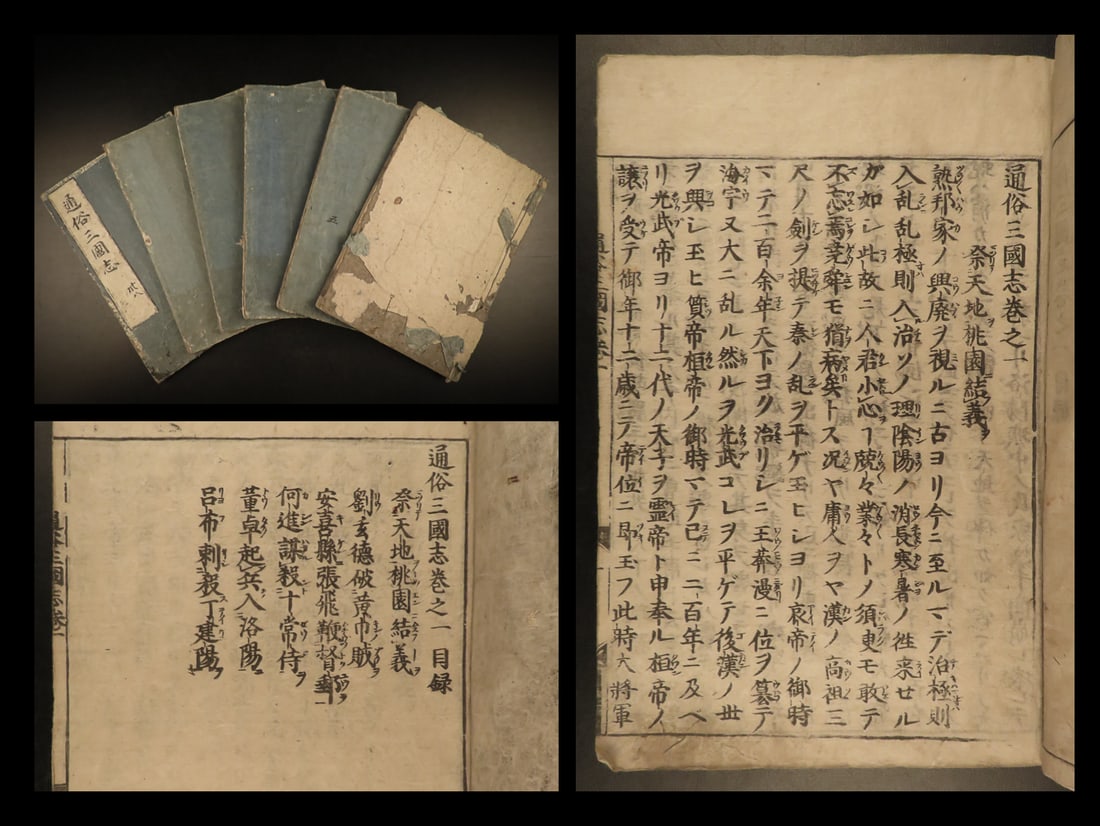 通俗三國志 卅八
五
通俗三國志巻之一 目録
祭天地桃園結義
劉玄德破黄巾賊
安喜縣張飛鞭督郵
何進謀殺十常侍
董卓起兵入洛陽
呂布刺殺丁建陽
通俗三國志巻之一
祭天地桃園結義
熟邦家ノ興廃ヲ視ルニ古ヨリ今ニ至ルマデ治極則
入乱乱極則入治ソノ理陰陽ノ消長寒暑ノ徃来セル
ガ如シ此故ニ人君小心ニ兢々業々トノ須臾モ敢テ
不忘焉尭舜モ猶病矣トス况ヤ庸人ヲヤ漢ノ高祖三
尺ノ劍ヲ提テ秦ノ乱ヲ平ゲ玉ヒシヨリ哀帝ノ御時
マテ二百余年天下ヨク治リシニ王莽漫ニ位ヲ簒テ
海宇又大ニ乱ル然ルヲ光武コレヲ平ゲテ後漢ノ世
ヲ興シ玉ヒ質帝桓帝ノ御時マテ已ニ二百年ニ及ベ
リ光武帝ヨリ十二代ノ天子ヲ靈帝ト申奉ル桓帝ノ
譲ヲ受テ御年十二歳ニテ帝位ニ即玉フ此時大將軍